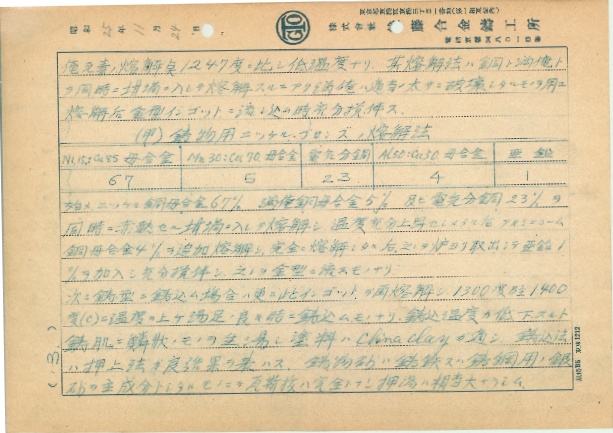 昭和25年11月24日
GTO
株式会社 後藤合金鋳工所
元素ノ熔解点1247度ニ比シ低温度ナリ 其熔解法ハ銅ト満俺ト
ヲ同時ニ坩堝ニ入レテ熔解スルニアリ満俺ハ適当ノ大サニ破壊シタルモノヲ用ヒ
熔解后金型インゴットニ流シ込ム時充分撹伴ス
(甲) 鋳物用ニッケルブロンズノ熔解法
Ni15:Cu85 母合金 Mn30:Cu70 母合金 電気分銅 Al50:Cu50 母合金 亜鉛
67 5 23 4 1
ニッケル銅母合金67% 満俺銅母合金5% 及ビ電気分銅23%ヲ
同時ニ 坩堝ニ入レテ熔解シ 温度充分上昇セシメタル后アルミニューム
銅母合金4%ヲ追加熔解シ 完全ニ熔解シタル后之ヲ炉ヨリ取出シテ亜鉛1
%ヲ加入シ充分撹伴シ 之レヲ金型ニ流スモノナリ
次ニ鋳型ニ鋳込ム場合ハ更ニ此インゴットヲ再熔解シ1300度乃至1400
度(C)ニ温度ノ上ゲ満足ノ良キ時ニ鋳込ムモノナリ 鋳込温度ガ低下スルト
鋳肌ニ 状ノモノヲ生ジ易シ 塗料ハ China clay ガ適シ 鋳込法
ハ押上法ガ良結果ヲ 鋳物砂ハ鋳鉄又ハ鋳鋼用ノ
砂ヲ主成分トシタルモノニテ 瓦斯抜ハ完全ニナシ押湯ハ相当大ナラシム
(3)